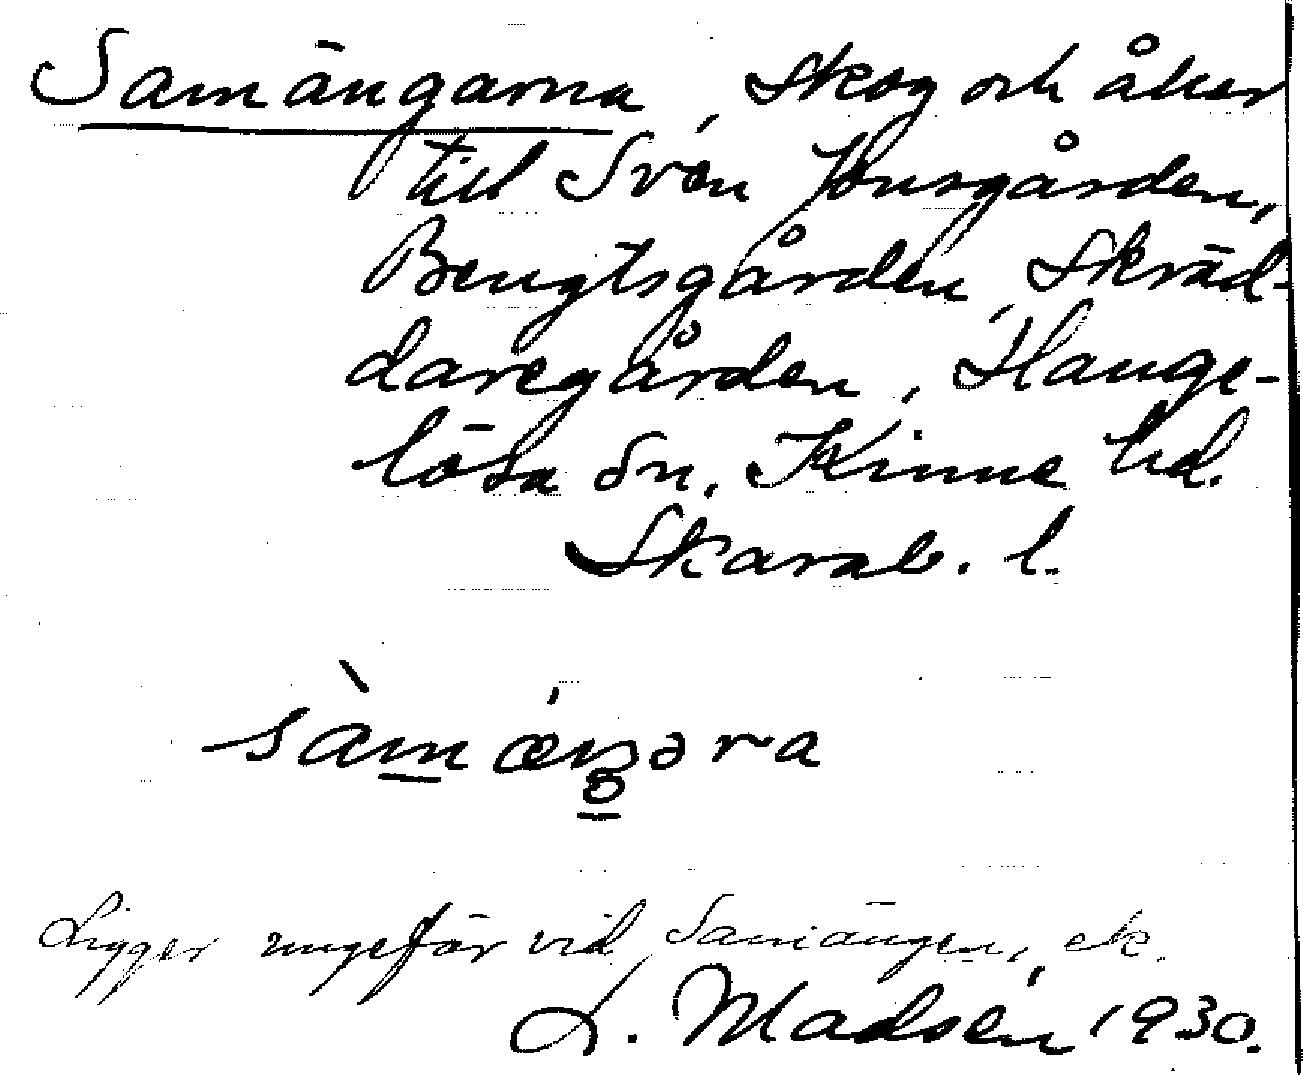 Samängarna, Skog och åker
till Sven Jonsgården,
Bengtsgården, Skräd-
daregården, Hange-
lösa sn, Kinne hd.
Skarab. l.
sàmǽŋəra
Ligger ungefär vid Samängen, ek.
L. Madsén 1930.